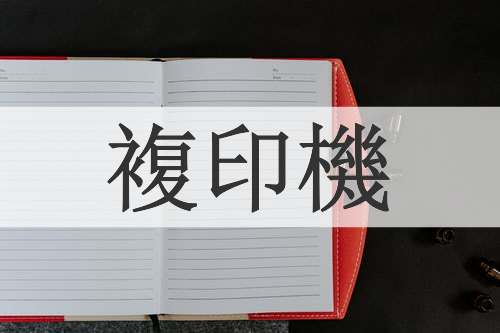 複印機